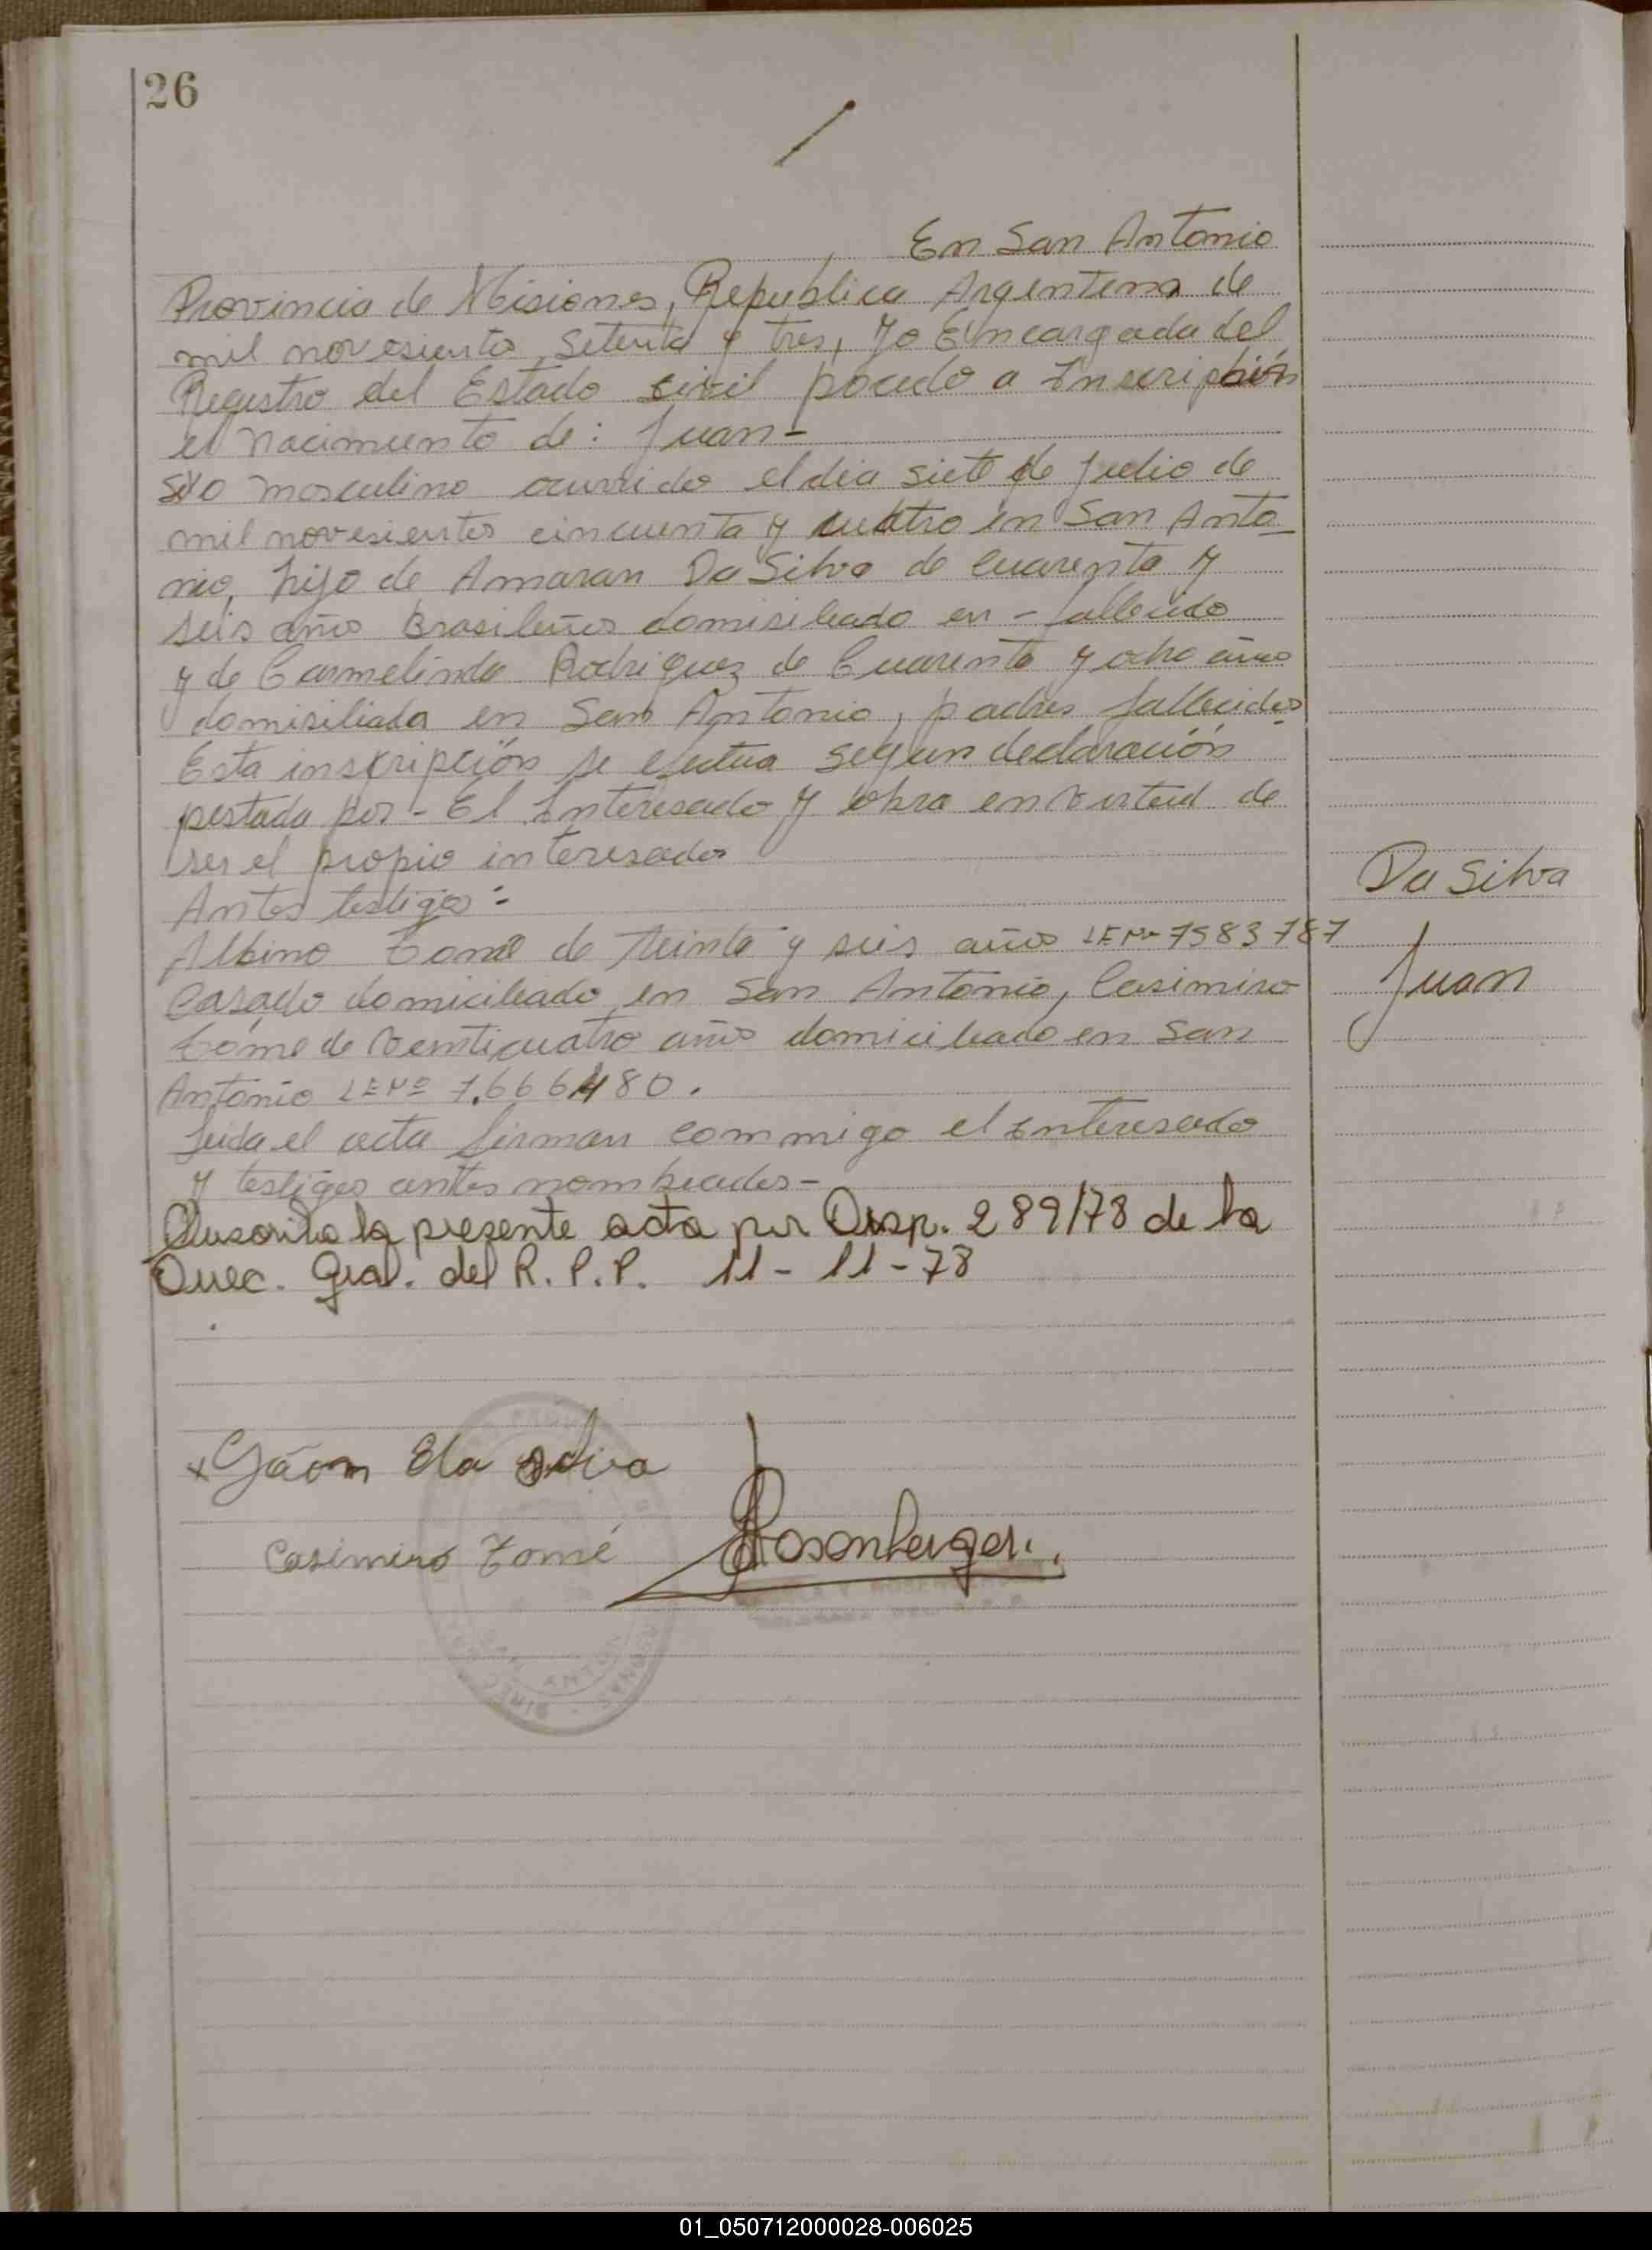 26
En San Antonio
Provincia de Misiones, Republica Argentina de
mil novesiento, Setenta y tres, yo Encargada del
Registro del Estado civil pocedo a Inscripción
el nacimiento de: Juan-
sexo masculino ocurrido el dia siete de Julio de
mil novesientos cincuenta y cuatro en San Anto-
nio, hijo de Amaran Da Silva de Cuarenta y
seis año Brasileños domisiliado en - fallecido
y de Carmelinda Rodriguez de Cuarenta y ocho años
domisiliada en San Antonio, padres fallecidos
Esta inscripción se efectua segun declaración
pestada por - El Interesado y obra en virtud de
ser el propio interesado
Antes testigos:-
Albino Tomé de treinta y seis años LENº 7583787
Casado domiciliado en San Antonio, Casimiro
Tomé de Veinticuatro años domiciliado en San
Antonio LENº 7.666480.
Leida el acta firman commigo el interesado
y testigos antes nombrados-
la presente acta por Disp. 289/78 de la
Direc. Gral. del R. P. P. 11-11-78
Da Silva
Juan
x Jáom Da silva
Casimiro Tomé
Rosenberger
01_050712000028-006025